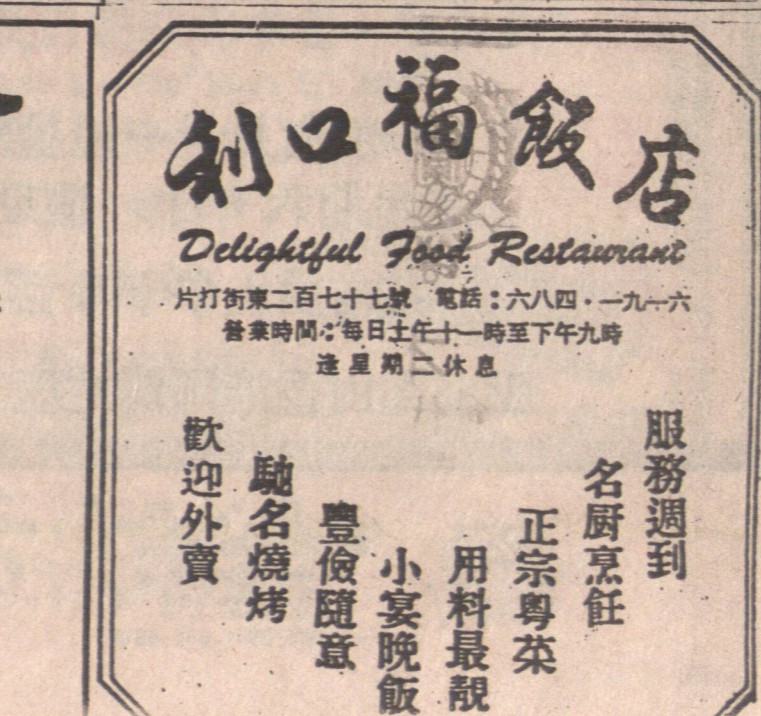 利口福飯店
Delightful Food Restaurant
片打街東二百七十七號 電話：六八四·一九一六
營業時間：每日上午十一時至下午九時
逢星期二休息
服務週到
名厨烹飪
正宗粵菜
用料最靚
小宴晚飯
豐儉隨意
馳名燒烤
歡迎外賣